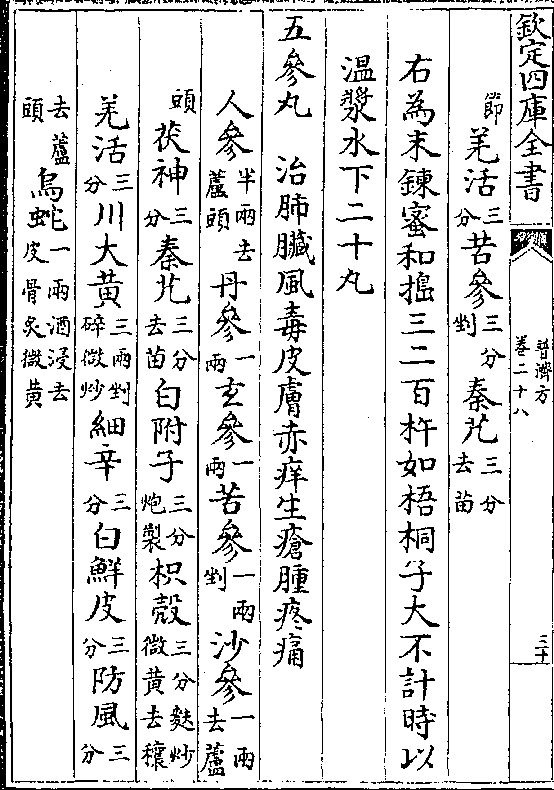 欽定四庫全書
普濟方
卷二十八
三十
節 羌活三分苦參三分剉秦艽三分去苗
右為末鍊蜜和搗三二百杵如梧桐子大不計時以
温漿水下二十丸
五參丸 治肺臟風毒皮膚赤痒生瘡腫疼痛
人參半兩去蘆頭丹參一兩玄參一兩苦參一兩剉沙參一兩去蘆
頭茯神三分秦艽三分去苗白附子三分炮製枳殼三分麩炒微黄去穰
羌活三分川大黄三兩剉碎微炒細辛三分白鮮皮三分防風三分
去蘆頭烏蛇一兩酒浸去皮骨炙微黄